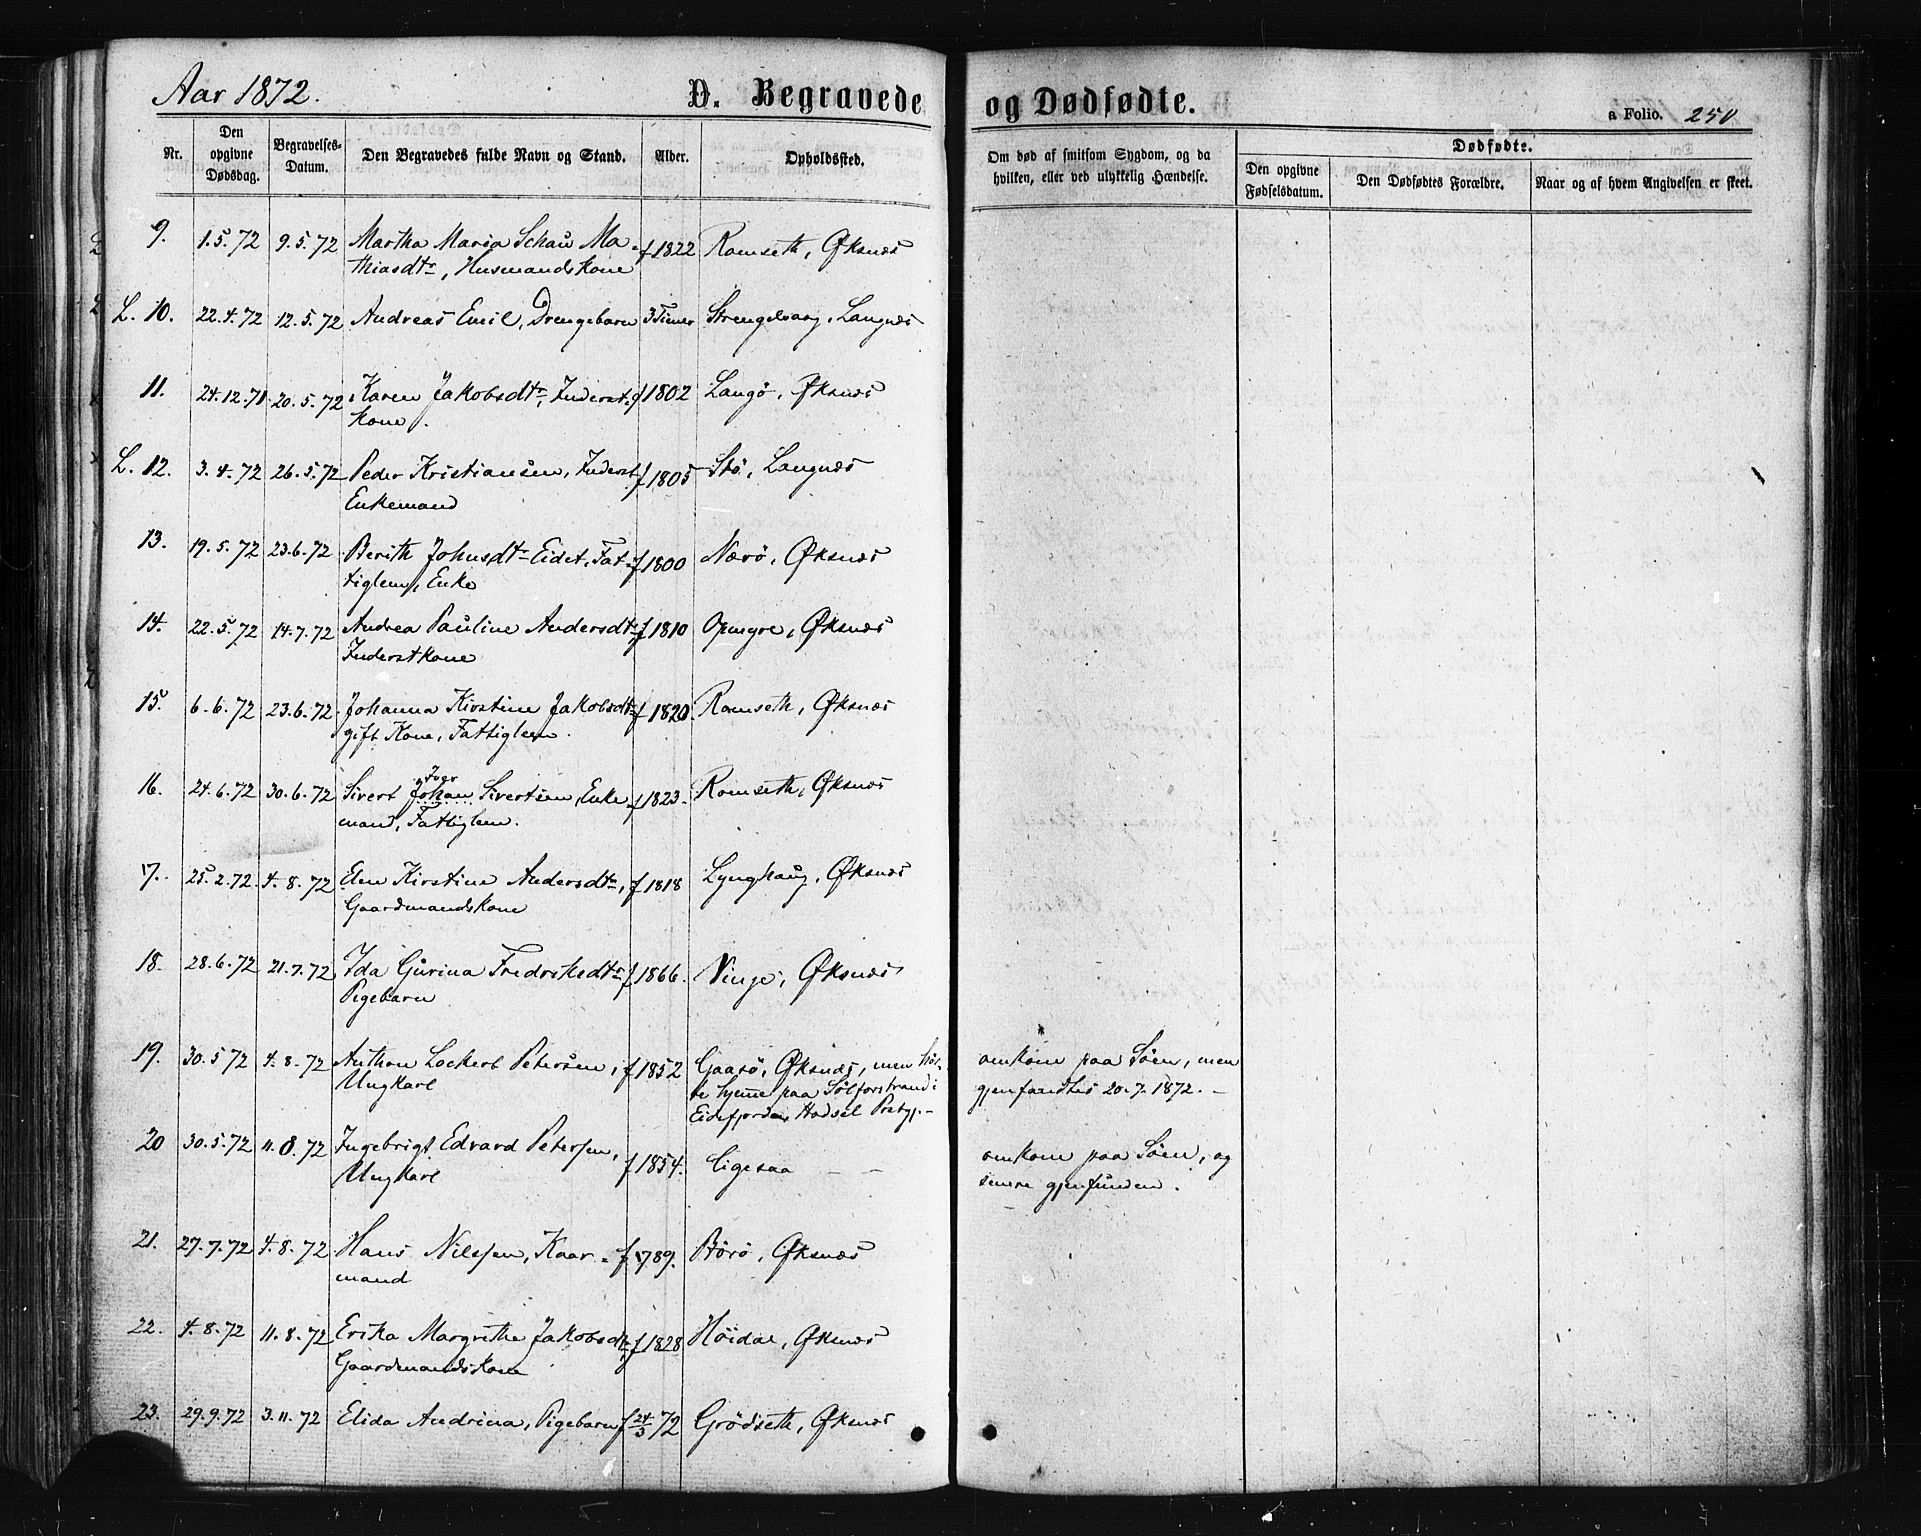 Aar 1872.
D. Begravede og Dødfødte.
a Folio. 250
Nr.
Den opgivne Dødsdag.
Begravelses-Datum.
Den Begravedes fulde Navn og Stand.
Alder.
Opholdssted.
Om død af smitsom Sygdom, og da hvilken, eller ved ulykkelig Hændelse.
Dødfødte.
Den opgivne Fødselsdatum.
Den Dødfødtes Forældre.
Naar og af hvem Angivelsen er skeet.
9. 1.5.72 9.5.72 Martha Maria Schau Ma- f 1822 Romseth, Øksnæs
thiasdtr, Husmandskone
L. 10. 22.4.72 12.5.72 Andreas Emil, Drengebarn 3 Timer Strengelvaag, Langnæs
11. 24.12.71 20.5.72 Karen Jakobsdtr, Inderst- f 1802 Langö, Øksnæs
kone.
L. 12. 3.4.72 26.5.72 Peder Kristiansen, Inderst f 1805 Stö, Langnæs
Enkemand
13. 19.5.72 23.6.72 Berith Johnsdtr Eidet, Fat- f 1800 Nærö, Øksnæs
tiglem, Enke
14. 22.5.72 14.7.72 Andrea Pauline Andersdtr, f 1810 Opmyre, Øksnæs
Inderstkone
15. 6.6.72 23.6.72 Johanna Kirstine Jakobsdtr f 1820. Romseth, Øksnæs
gift Kone, Fattiglem.
Iver
16. 24.6.72 30.6.72 Sivert Johan Sivertsen, Enke- f 1823. Romseth, Øksnæs
mand, Fattiglem.
17. 25.2.72. 4.8.72 Elen Kirstine Andersdtr, f 1818 Lynghaug, Øksnæs
Gaardmandskone
18. 28.6.72 21.7.72 Ida Gurina Fredrikedtr f 1866. Vinje, Øksnæs
Pigebarn
19. 30.5.72 4.8.72 Anthon Lockert Petersen, f 1852 Gaasö, Øksnæs, men hör- omkom paa Söen, men
Ungkarl te hjemme paa Sölforstrand i gjenfandtes 20.7.1872. –
Eidsfjorden, Hadsel Prstgj. –
20 30.5.72 11.8.72 Ingebrigt Edvard Petersen, f 1854. ligesaa – – omkom paa Söen, og
Ungkarl senere gjenfunden.
21. 27.7.72 4.8.72 Hans Nilssen, Kaar- f 1789. Börö, Øksnæs
mand
22. 4.8.72 11.8.72 Erika Margrethe Jakobsdtr f 1828 Höidal, Øksnæs
Gaardmandskone
23. 29.9.72 3.11.72 Elida Andrina, Pigebarn f 24/5 72 Grödseth, Øksnæs